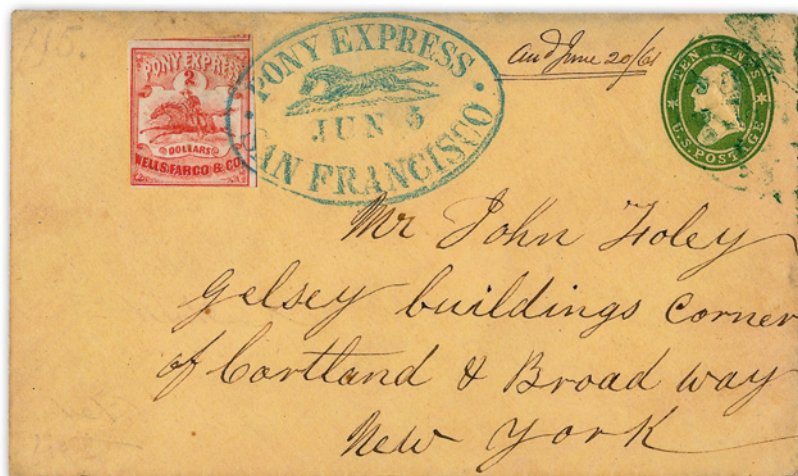 415.
PONY EXPRESS
2
DOLLARS
WELLS, FARGO & CO.
PONY EXPRESS
JUN 5
SAN FRANCISCO
Ansd June 20/61
TEN CENTS
U.S. POSTAGE
Mr John Foley
Gelsey buildings corner
of Cortland & Broad way
New York